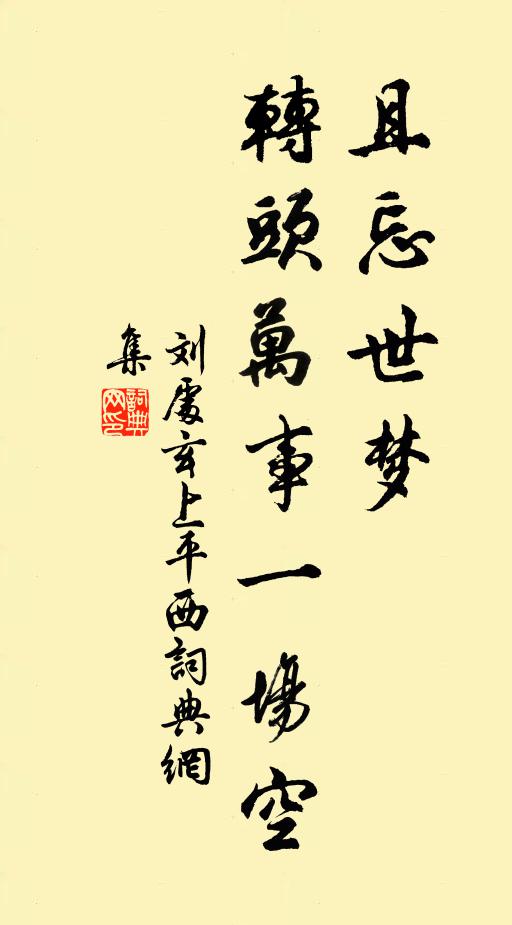 且忘世梦
轉頭萬事一場空
刘處玄上平西詞典網
集
詞典
网印